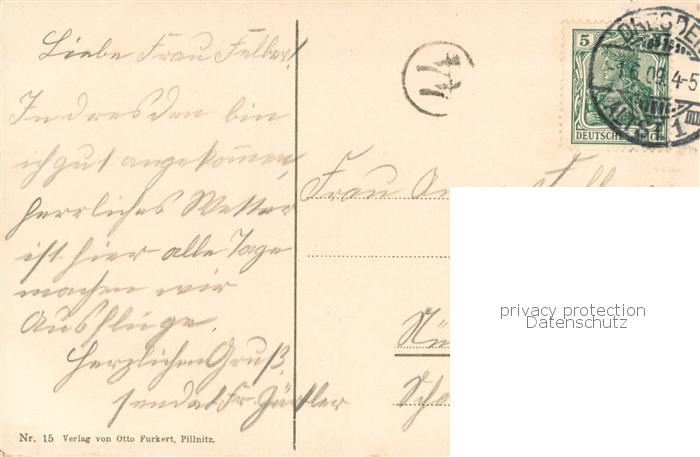 Liebe Frau Felber!
In dresden bin
ich gut angekommen,
herrliches Wetter
ist hier alle Tage
machen wir
Ausflüge.
Herzlichen Gruß
sendet Fr.
44
5
DRESDEN
09. 4-5
DEUTSCHES REICH
Frau
Nü
Nr. 15 Verlag von Otto Furkert, Pillnitz.
privacy protection
Datenschutz